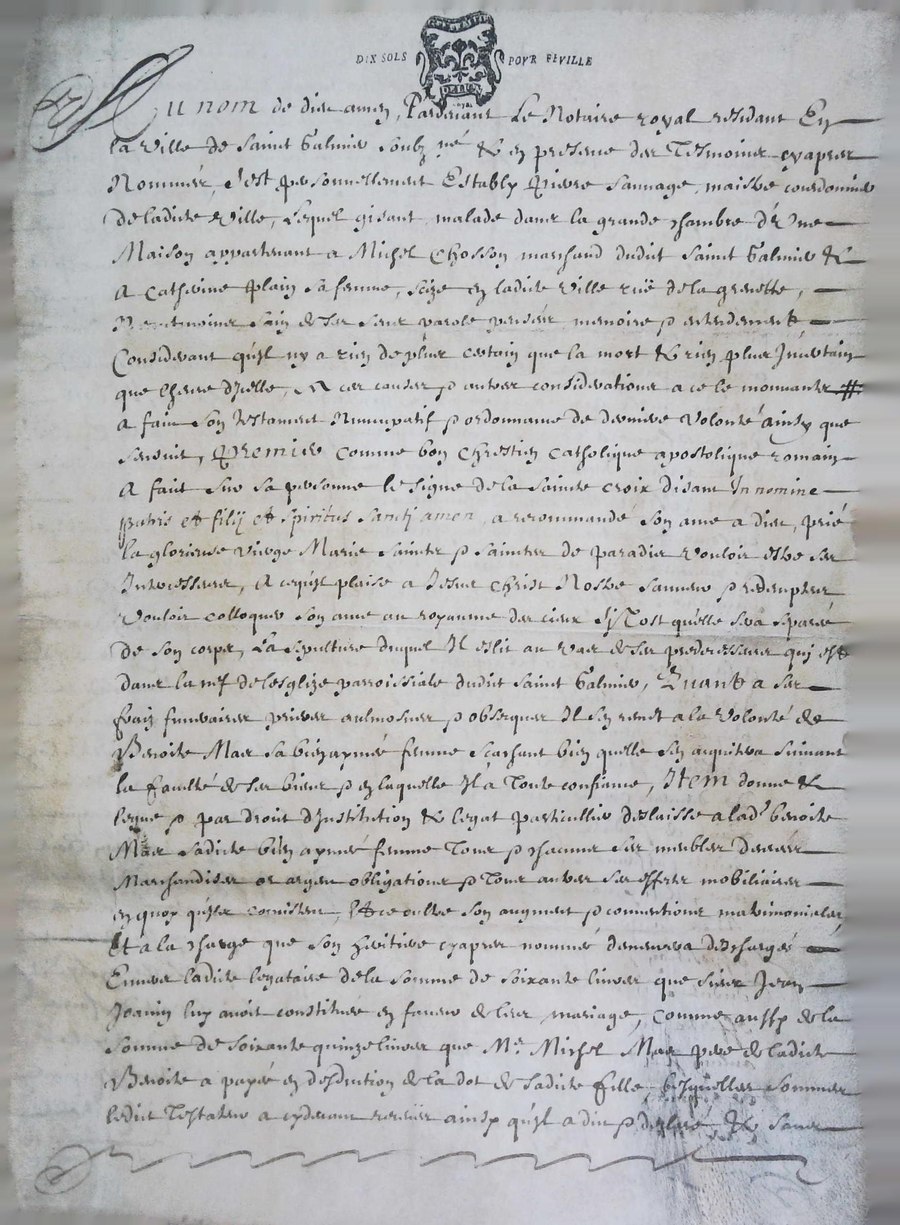 DIX SOLS POUR FEUILLE
Au nom de dieu amen, Pardevant Le Notaire royal residant En
la ville de Saint Galmier soubz né & en presence des Tesmoins cyapres
Nommés, s'est personnellement Estably Pierre Sauuage, maistre courdonnier
de ladicte ville, Lequel gisant malade dans la grande chambre d'Une
Maison appartenant a Michel Chosson marchand dudit Saint Galmier &
a Catherine Plain sa femme, scize en ladicte ville ruë de la grenette,
Neantmoins sain de ses sens parole pensée memoire & entendement
Considerant qu'il ny a rien de plus certain que la mort & rien plus Incertain
que lheure d'icelle, A ces causes & autres considerations a ce le mouuants
a fait son Testament Nuncupatif & ordonnance de derniere volonté ainsy que
sensuit, Premier comme bon Chrestien catholique apostolique romain
A fait sur sa personne le signe de la sainte croix disant In nomine
patris et filij et spiritus sancti amen, a recommandé son ame a dieu, prié
la glorieuse vierge Marie saints & saintes de paradis vouloir estre ses
Intercesseurs, A ce qu'il plaise a Jesus Christ Nostre sauueur & redempteur
vouloir colloquer son ame au royaume des cieux si tost qu'elle sera separée
de son corps, La sepulture duquel Il eslit au vas de ses predecesseurs qui est
dans la nef de lesglize parroissiale dudit Saint Galmier, Quant a ses
fraiz funeraires prieres aulmosnes & obseques Il s'en remet a la volonté de
Benoite Mas sa bien aymée femme scachant bien quelle s'en acquitera suiuant
la faculté de ses biens & en laquelle Il a Toute confiance, Item donne &
legue & par droit d'Institution & legat particullier deslaisse a lad. benoite
Mas sadicte bien aymée femme Tous & chacuns ses meubles danrées
Marchandises or argent obligations & Tous autres ses effets mobiliaires
en quoy qu'ils consistent, Et ce oultre son augment & conuentions matrimoniales,
Et a la charge que son heritiere cyapres nommée demeurera deschargée
Enuers ladicte legataire de la somme de soixante liures que sieur Jean
Joanin luy auoit constituée en faueur de leur mariage, comme aussy de la
somme de soixante quinze liures que Me. Michel Mas pere de ladicte
Benoite a payée en desduction de la dot de sadicte fille, lesquelles sommes
ledict Testateur a cydeuant receues ainsy qu'il a dit & declaré & sans